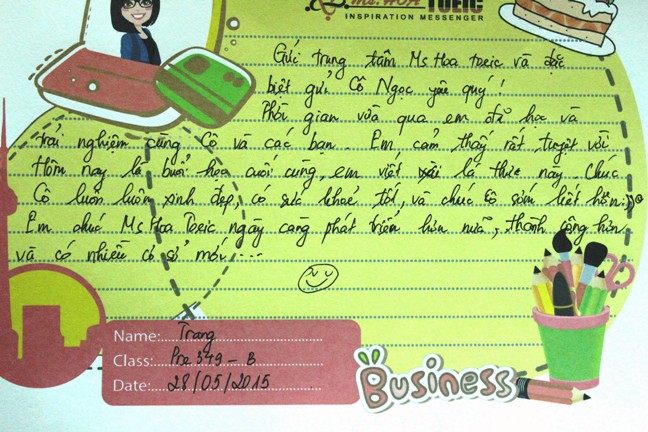 Ms. HOA TOEIC
INSPIRATION MESSENGER
Gửi trung tâm Ms Hoa Toeic và đặc
biệt gửi Cô Ngọc yêu quý!
Thời gian vừa qua em đã học và
trải nghiệm cùng Cô và các bạn. Em cảm thấy rất tuyệt vời
Hôm nay là buổi học cuối cùng, em viết lá thư này. Chúc
Cô luôn luôn xinh đẹp, có sức khoẻ tốt, và chúc cô sớm hết hôn:))
Em chúc Ms Hoa Toeic ngày càng phát triển hơn nữa, thành công hơn
và có nhiều cơ sở mới...
Name: Trang
Class: Pre 349 - B
Date: 28/05/2015
Business